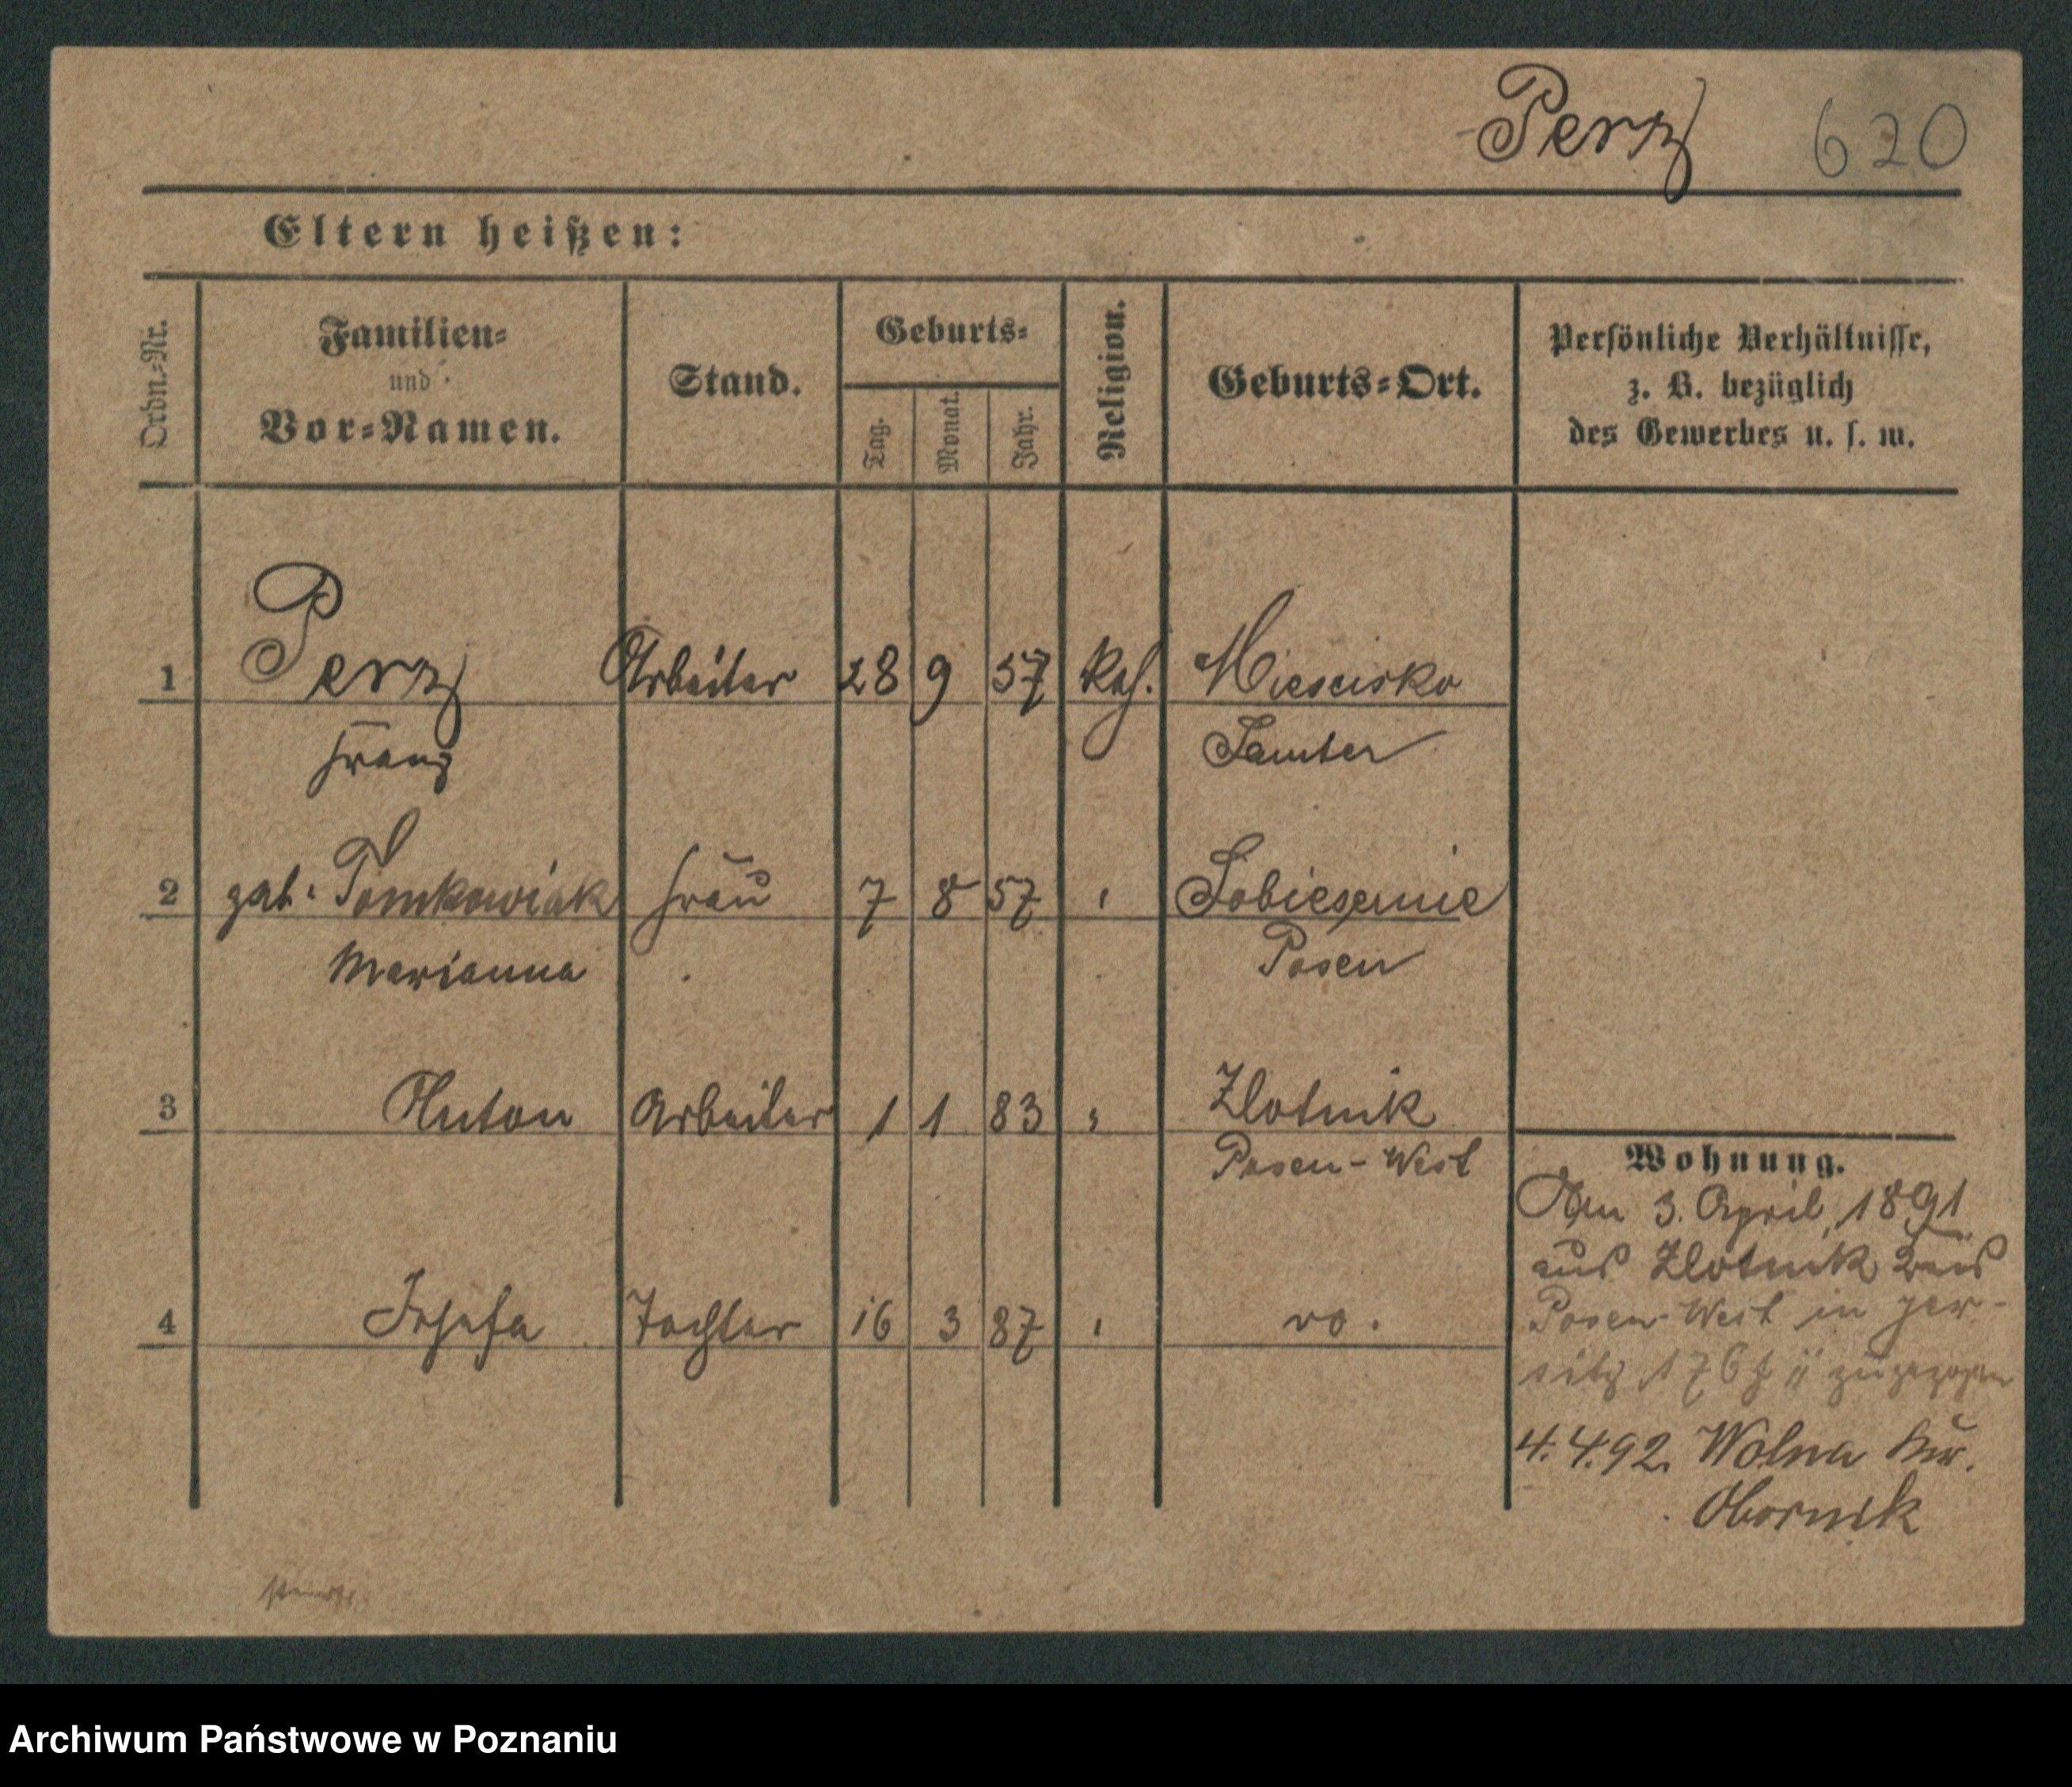 Perz 620
Eltern heißen:
Ordn.-Nr.
Familien-
und
Vor-Namen.
Stand.
Geburts-
Tag.
Monat.
Jahr.
Religion.
Geburts-Ort.
Persönliche Verhältnisse,
z. B. bezüglich
des Gewerbes u. s. w.
1 Perz Arbeiter 28 9 57 kath. Miescisko
Franz Samter
2 geb. Tomkowiak Frau 7 8 57 " 
Marianna Posen
3 Anton Arbeiter 1 1 83 " Zlotnik
Posen-West
4 Josefa Tochter 16 3 87 " do.
Wohnung.
Am 3. April 1891
aus Zlotnik Kreis
Posen-West in Jer-
sitz 176 zugezogen
4.4.92. Wolna Kr.
Obornik
Archiwum Państwowe w Poznaniu